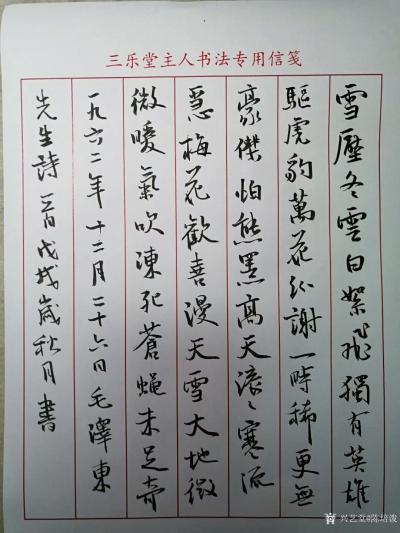 三乐堂主人书法专用信笺
雪壓冬雲白絮飛獨有英雄
驅虎豹萬花紛謝一時稀更無
豪傑怕熊羆高天滚々寒流
急梅花歡喜漫天雪大地微
微暖氣吹凍死蒼蠅未足奇
一九六二年十二月二十六日毛澤東
先生詩一首戊戌歲秋月書
兴艺堂@陈培泼